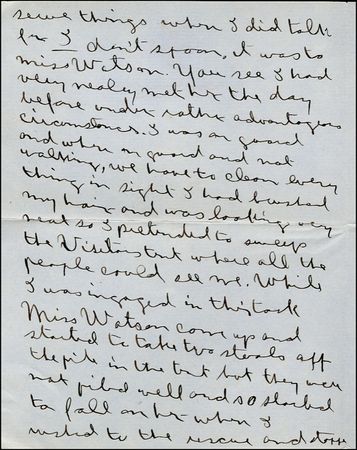 serve things when I did talk
for I don't spoon, it was to
Miss Watson. You see I had
very nearly met her the day
before under rather advantageous
circumstances. I was on guard
and when on guard and not
walking, we have to clean every
thing in sight I had brushed
my hair and was looking very
neat so I pretended to sweep
the Visitors tent where all the
people could see me. While
I was ingaged in this task
Miss Watson come up and
started to take two stools off
the pile in the tent but they were
not piled well and so started
to fall on her when I
rushed to the rescue and stopp